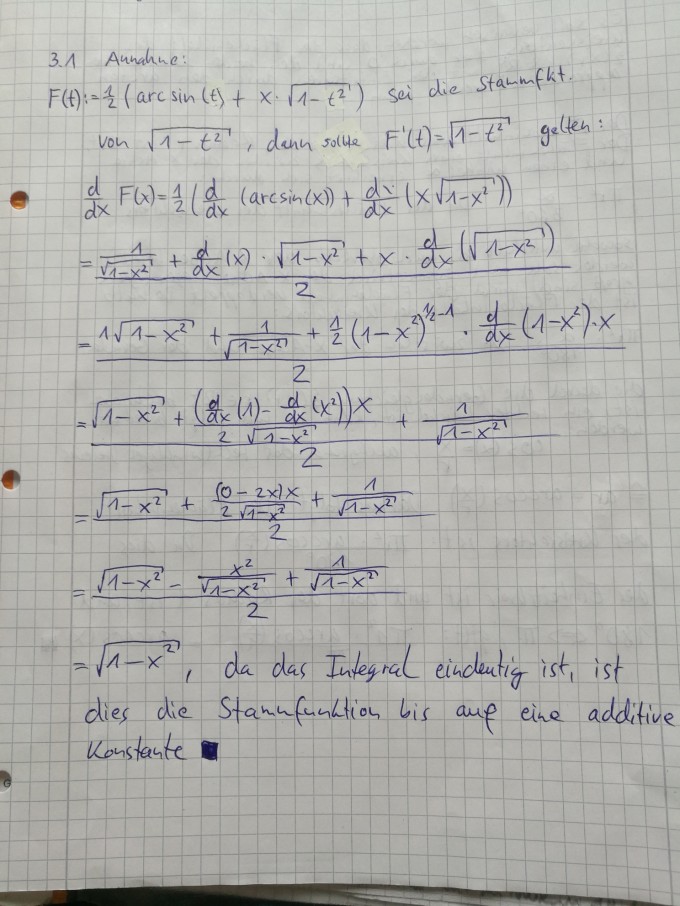 3.1 Annahme:
F(t):=½(arcsin(t) + x·√(1-t²)) sei die Stammfkt.
von √(1-t²), dann sollte F'(t)=√(1-t²) gelten:
d/dx F(x)=½(d/dx (arcsin(x)) + dx/dx (x√(1-x²)))
= (1/√(1-x²) + d/dx (x) · √(1-x²) + x · d/dx (√(1-x²)))/2
= (1√(1-x²) + 1/√(1-x²) + ½(1-x²)^(1/2-1) · d/dx (1-x²)·x)/2
= (√(1-x²) + ((d/dx (1) - d/dx (x²))x)/(2√(1-x²)) + 1/√(1-x²))/2
= (√(1-x²) + ((0-2x)x)/(2√(1-x²)) + 1/√(1-x²))/2
= (√(1-x²) - x²/√(1-x²) + 1/√(1-x²))/2
= √(1-x²), da das Integral eindeutig ist, ist
dies die Stammfunktion bis auf eine additive
Konstante ■